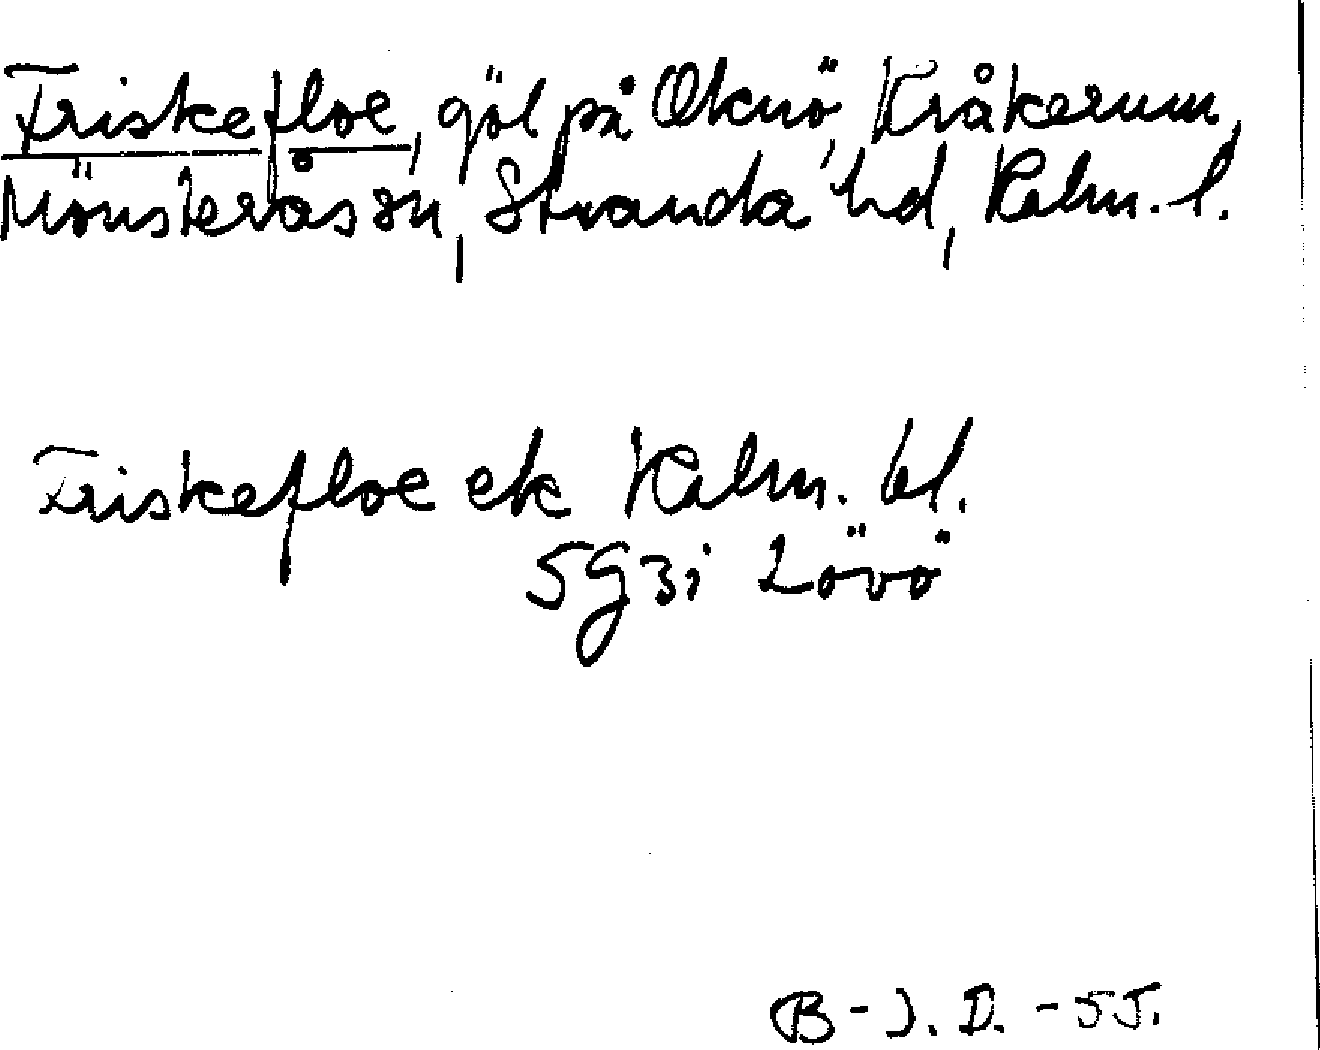 Friskefloe, göl på Oknö, Kråkerum,
Mönsterås sn, Stranda hd, Kalm. l.
Friskefloe ek Kalm. bl.
5G3i Lövö
B-J. D. -55.